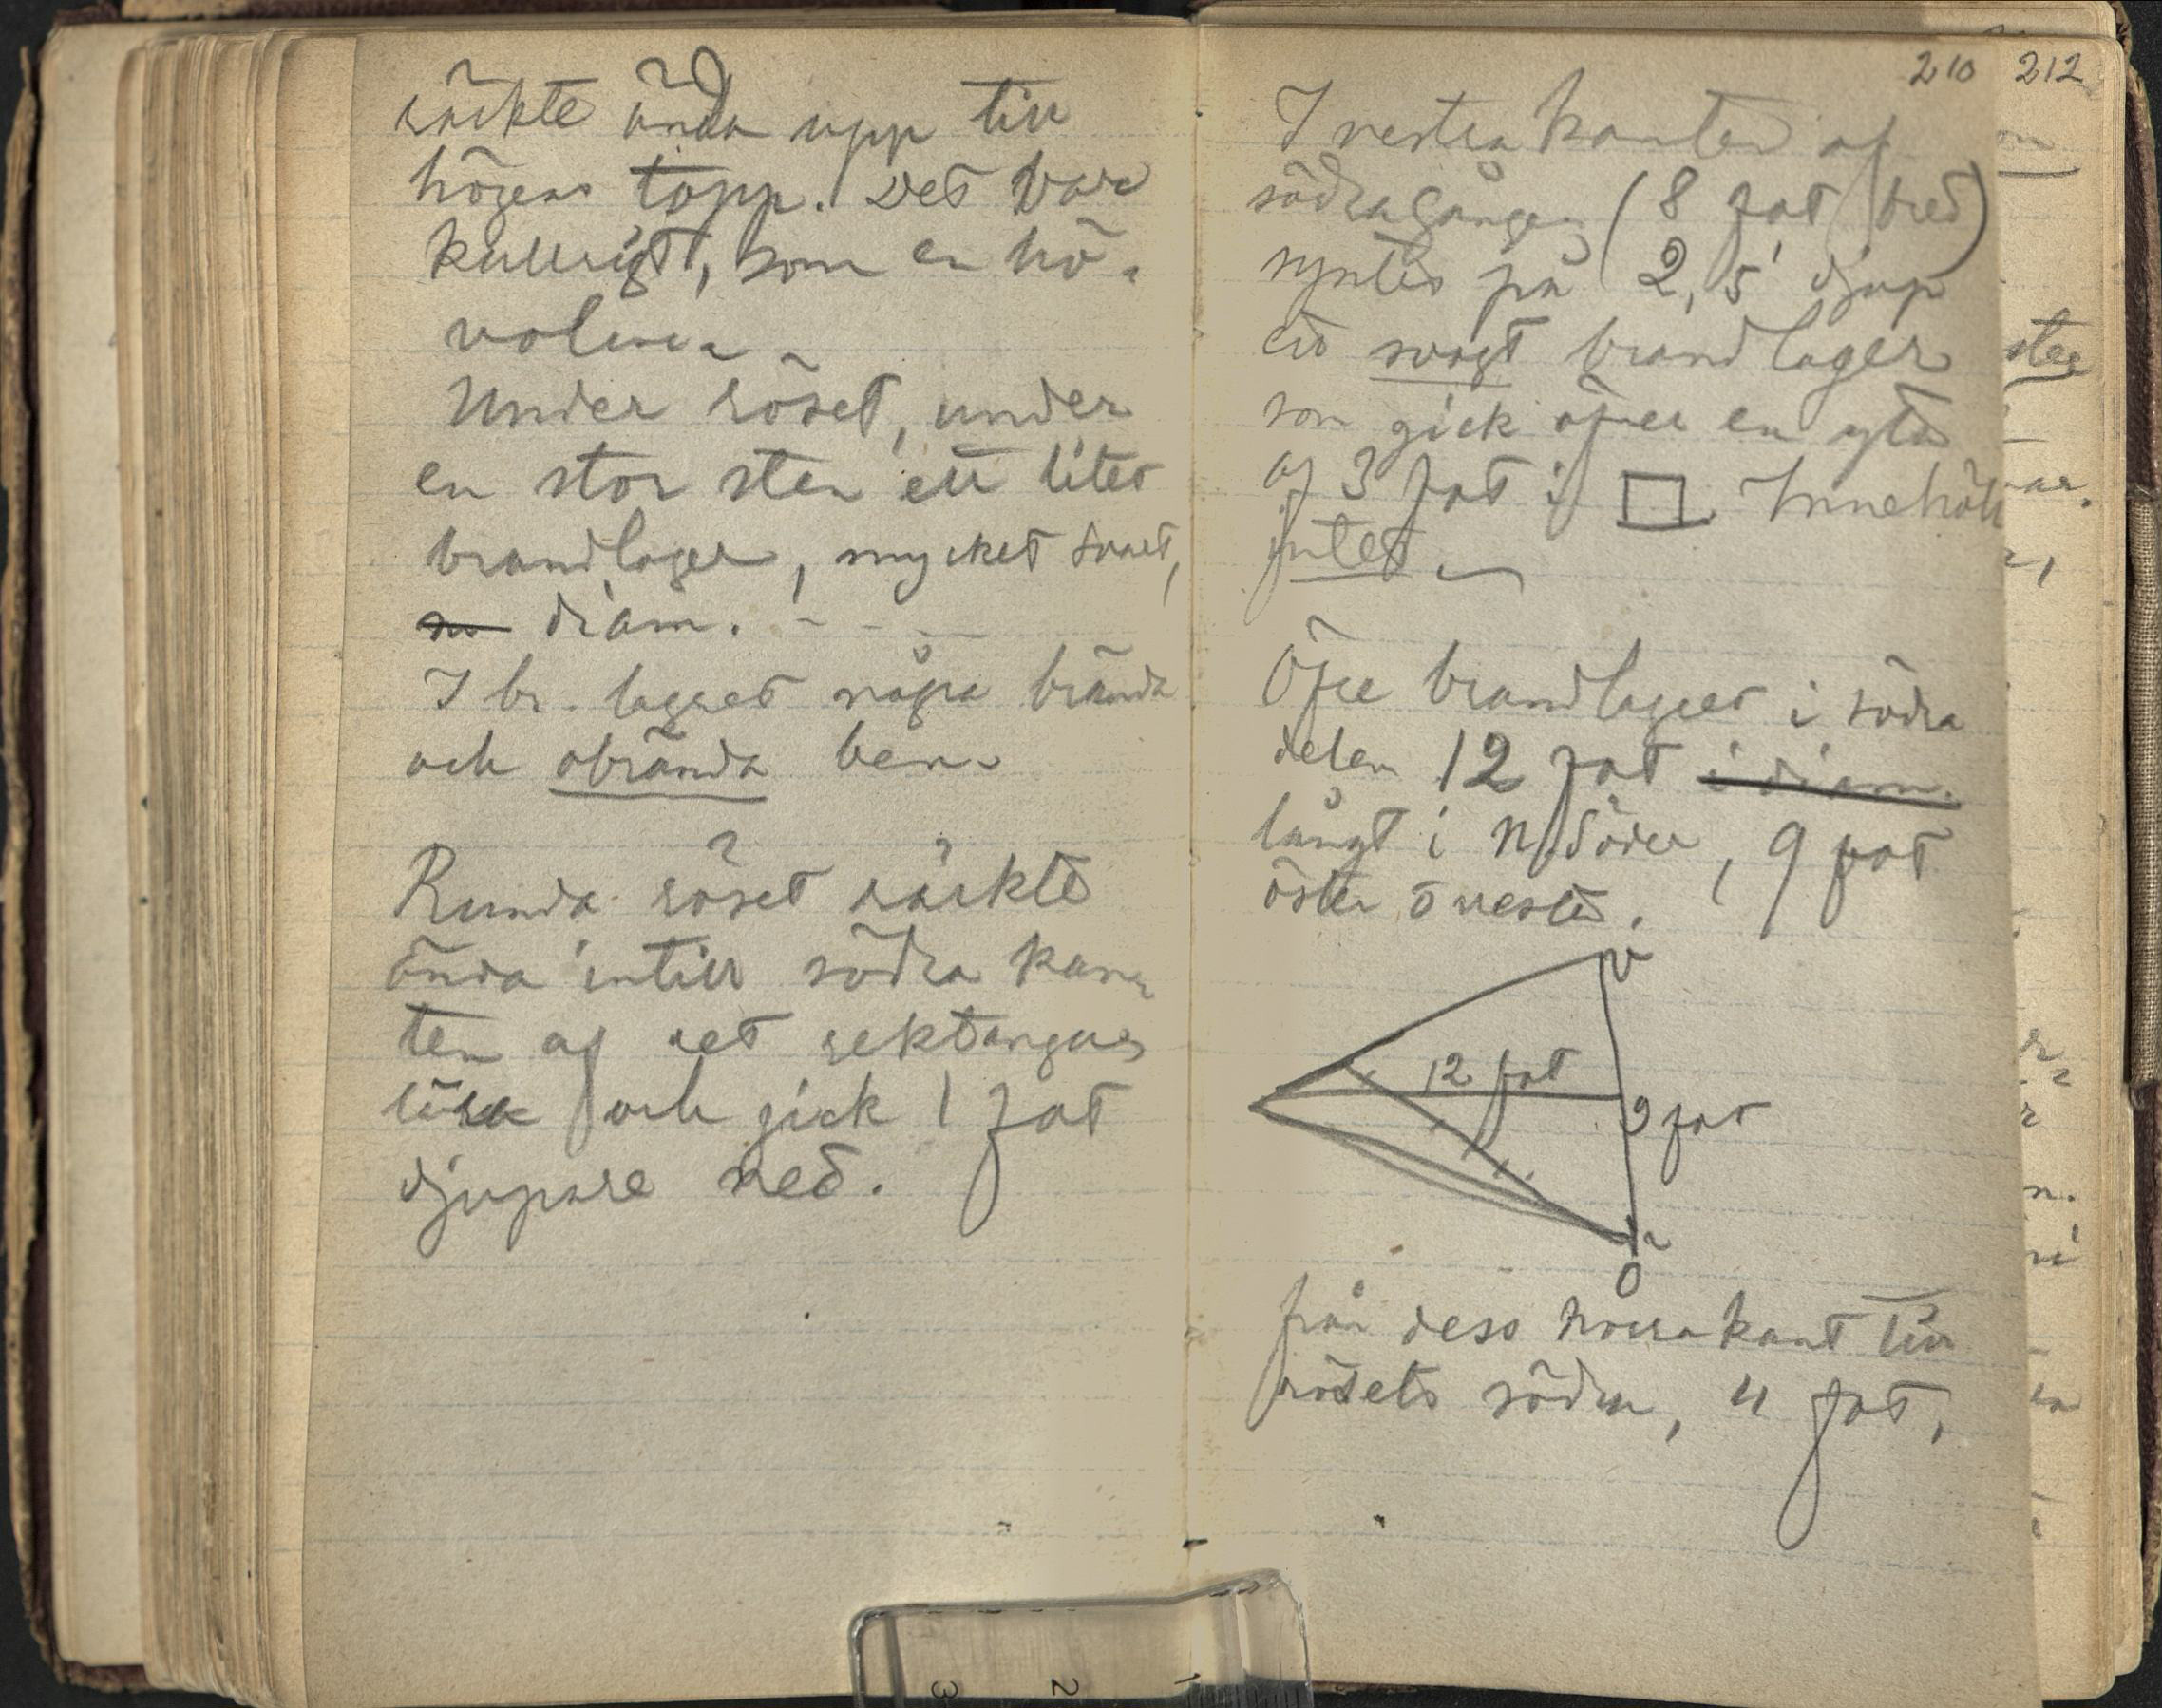 räckte ända upp till
högens topp. Det var
kullrigt, som en hö-
volm.
Under röset, under
en stor sten ett litet
brandlager, mycket svart,
diam. - - -
I br. lagret några brända
och obrända ben.
Runda röset räckte
ända intill södra kan-
ten af det rektangu-
lära och gick 1 fot
djupare ned.
210
I vestra kanten af
södra gången (8 fot bred)
syntes på 2,5' djup
ett svagt brandlager
som gick öfver en yta
af 3 fot i □. Innehöll
intet.
Öfre brandlagret i södra
delen 12 fot i diam.
långt i N. Söder, 9 fot
öster o vester.
V
12 fot
9 fot
Ö
från dess norra kant till
rösets södra, 4 fot,
212